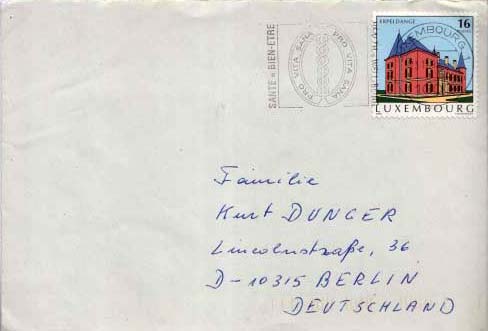 SANTE = BIEN-ETRE
PRO VITA SANA PRO VITA SANA
ERPELDANGE
16
LUXEMBOURG
LUXEMBOURG
Familie
Kurt DUNGER
Lincolnstraße, 36
D-10315 BERLIN
DEUTSCHLAND